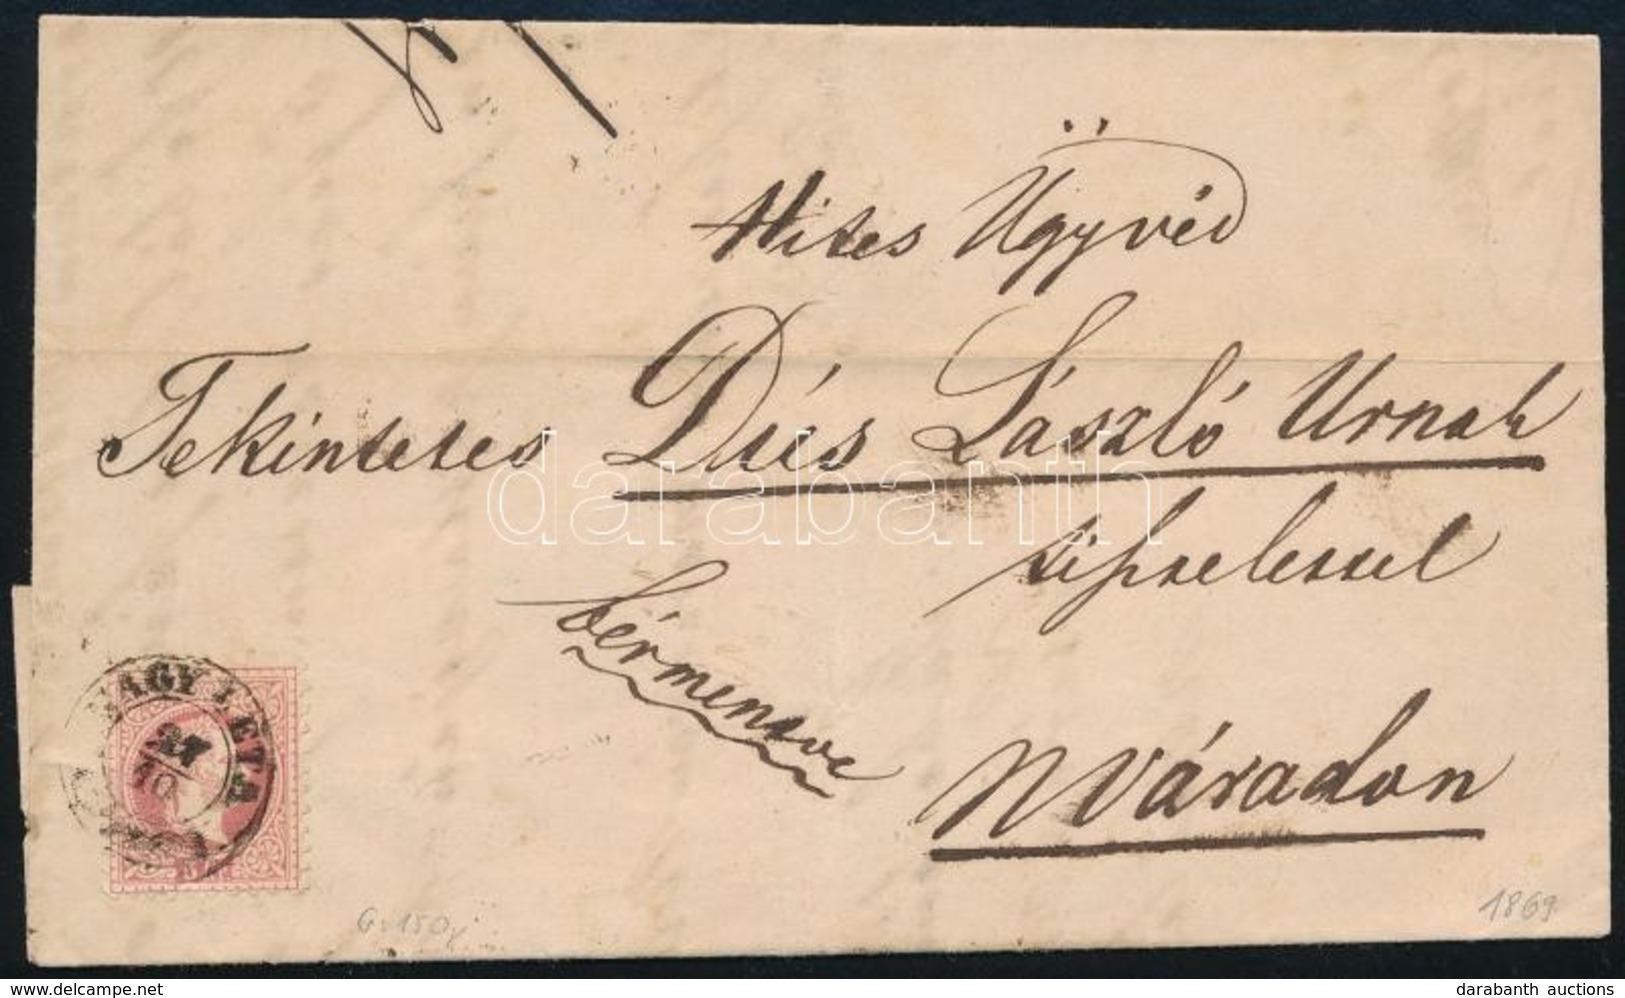 Hites Ügyvéd
Tekintetes Dús László Urnak
tisztelettel
bérmentve
NVáradon
NAGY LÉTA
27
10
G:150
1869
darabanth
www.delcampe.net
darabanth auctions